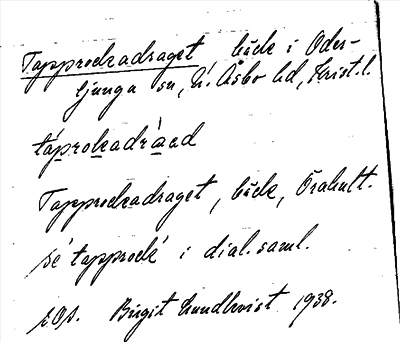 Tapprockadraget bäck i Oder-
ljunga sn, N. Åsbo hd, Krist.l.
táprokadràad
Tapprockadraget, bäck, Örahult.
se 'tapprock' i dial.saml.
Birgit Lundkvist 1938.